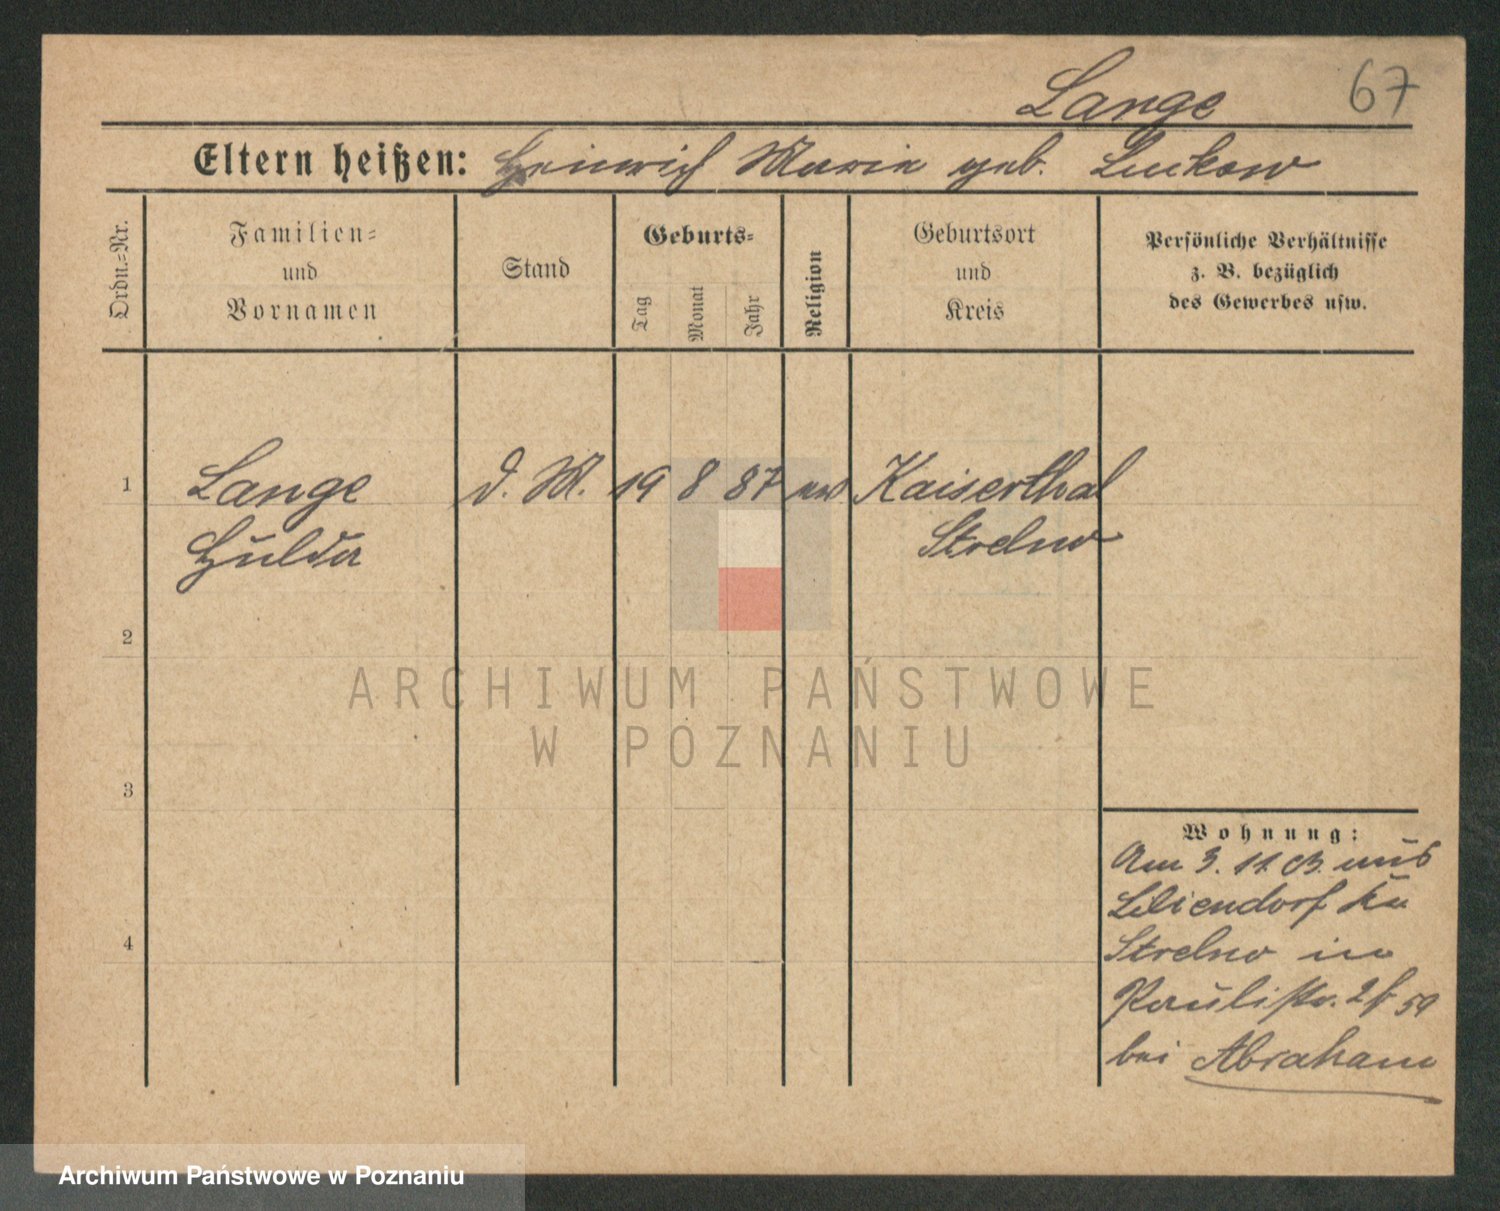 Lange 67
Eltern heißen: Heinrich Marie geb. Luckow
Ordn.-Nr.
Familien-
und
Vornamen
Stand
Geburts-
Tag
Monat
Jahr
Religion
Geburtsort
und
Kreis
Persönliche Verhältnisse
z. B. bezüglich
des Gewerbes usw.
1 Lange d. M. 19 8 87 ev Kaiserthal
Hulda Strelno
2
3
4
Wohnung:
Am 3. 11. 03. aus
Liliendorf Kr
Strelno in
Paulistr. 2 59
bei Abraham
ARCHIWUM PAŃSTWOWE
W POZNANIU
Archiwum Państwowe w Poznaniu